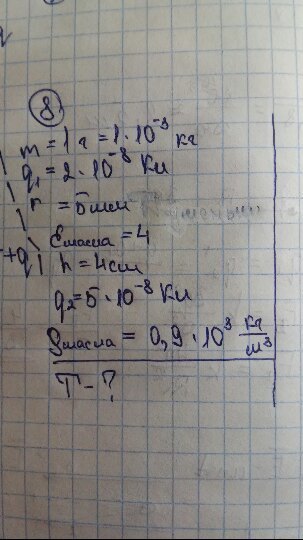 8
m = 1 г = 1 · 10⁻³ кг
q₁ = 2 · 10⁻⁸ Кл
r = 5 мм
ε масла = 4
+q
h = 4 см
q₂ = 5 · 10⁻⁸ Кл
ρ масла = 0,9 · 10³ кг/м³
T - ?